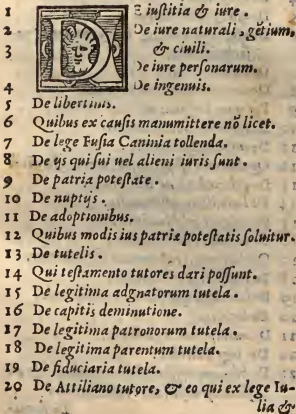 1 DE iuſtitia & iure.
2 De iure naturali, gẽtium,
3 & ciuili.
De iure perſonarum.
4 De ingenuis.
5 De libertinis.
6 Quibus ex cauſis manumittere nõ licet.
7 De lege Fuſia Caninia tollenda.
8 De ijs qui ſui uel alieni iuris ſunt.
9 De patria poteſtate.
10 De nuptijs.
11 De adoptionibus.
12 Quibus modis ius patriæ poteſtatis ſoluitur.
13 De tutelis.
14 Qui teſtamento tutores dari poſſunt.
15 De legitima adgnatorum tutela.
16 De capitis deminutione.
17 De legitima patronorum tutela.
18 De legitima parentum tutela.
19 De fiduciaria tutela.
20 De Attiliano tutore, & eo qui ex lege Iu-
lia &